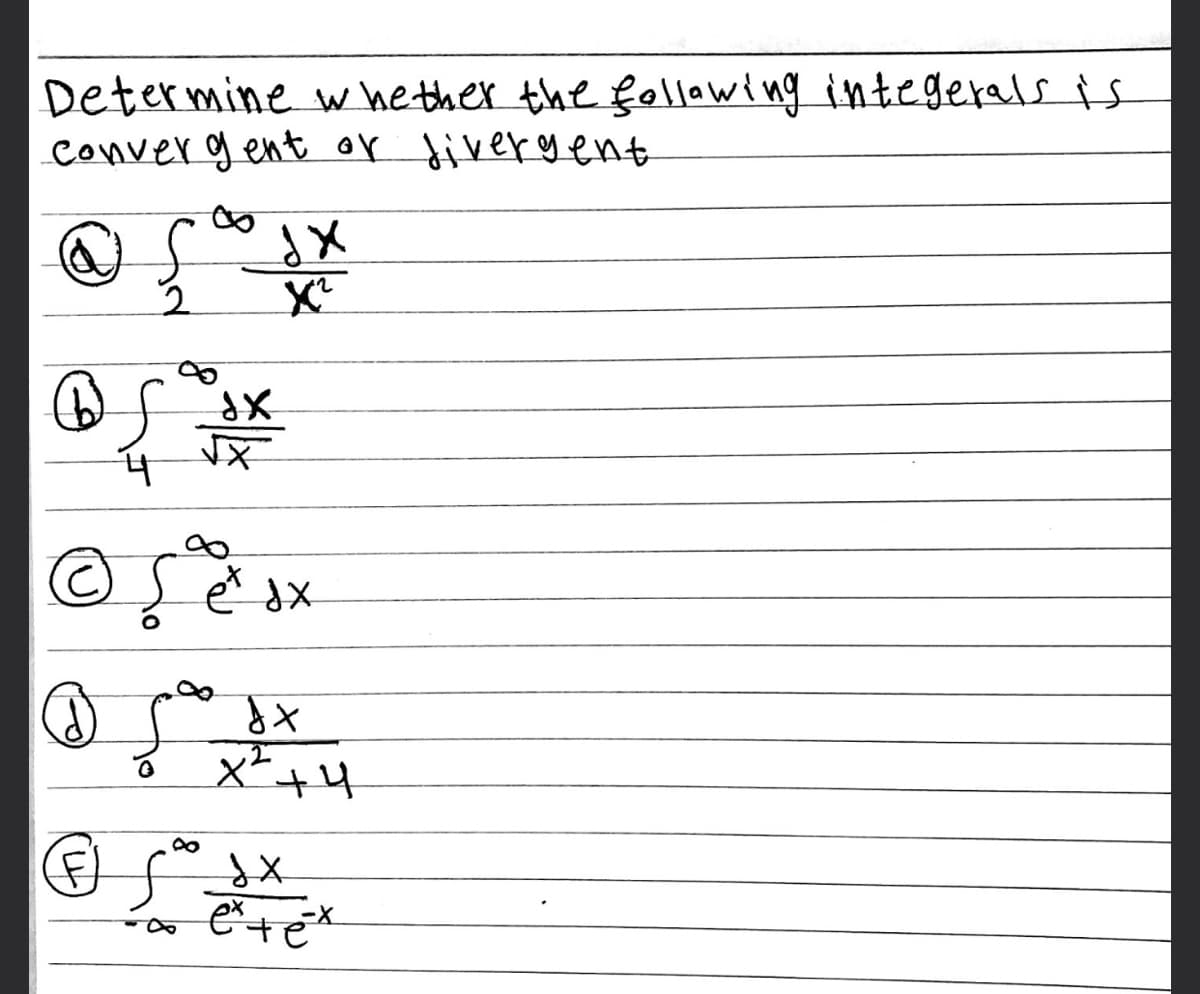 Determine whether the following integerals is
convergent or divergent
(a) ∫₂^∞ dx/x²
(b) ∫₄^∞ dx/√x
(c) ∫₀^∞ eˣ dx
(d) ∫₀^∞ dx/(x²+4)
(F) ∫₋∞^∞ dx/(eˣ+e⁻ˣ)